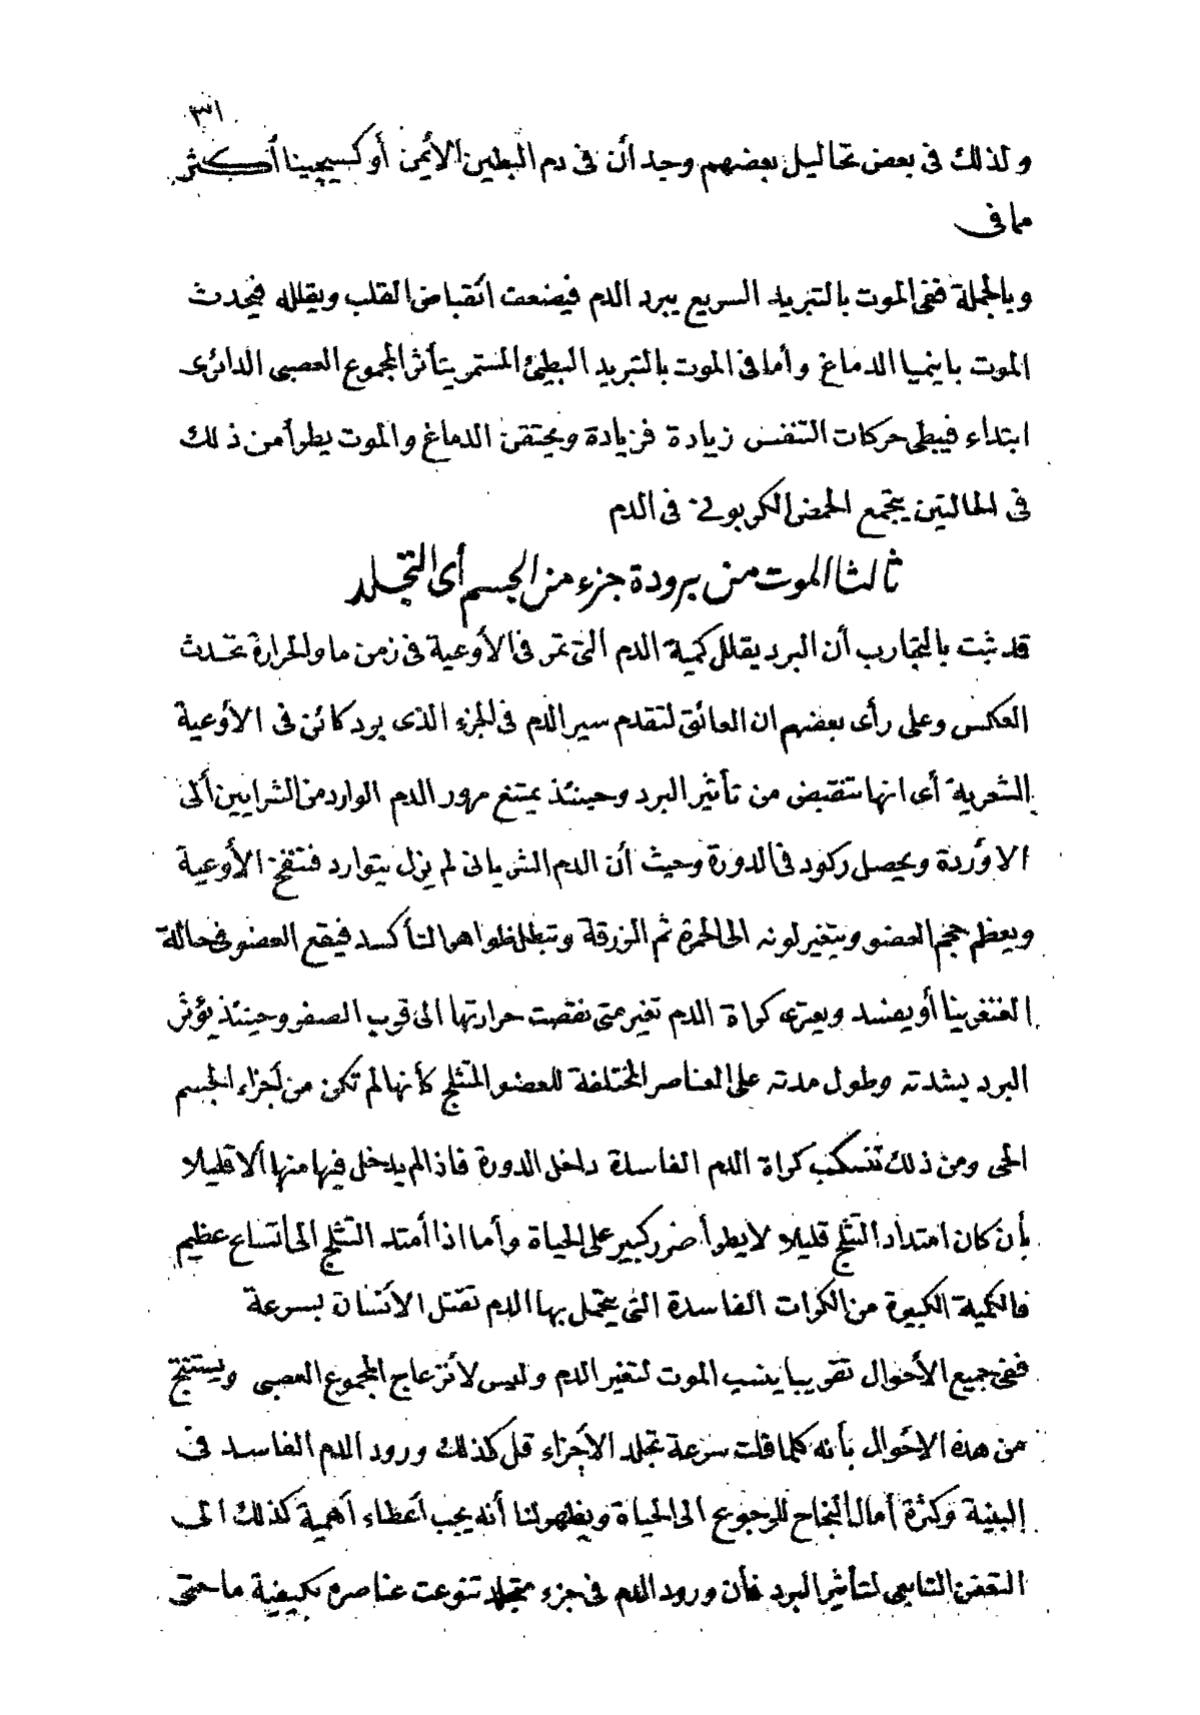 ٣١
ولذلك فى بعض تحاليل بعضهم وجد أن فى دم البطين الأيمن أوكسيچينا أكثر
مما فى
وبالجملة ففى الموت بالتبريد السريع يبرد الدم فيضعف انقباض القلب ويقلله فيحدث
الموت باينميا الدماغ وأما فى الموت بالتبريد البطئ المستمر يتأثر المجموع العصبى الدائرى
ابتداء فيبطى حركات التنفس زيادة فزيادة ويحتقن الدماغ والموت يطرأ من ذلك
فى الحالتين يتجمع الحمض الكربونى فى الدم
ثالثا الموت من برودة جزء من الجسم أى التجلد
قد ثبت بالتجارب أن البرد يقلل كمية الدم التى تمر فى الأوعية فى زمن ما والحرارة تحدث
العكس وعلى رأى بعضهم ان العائق لتقدم سير الدم فى الجزء الذى برد كائن فى الأوعية
الشعرية أى انها تنقبض من تأثير البرد وحينئذ يمتنع مرور الدم الوارد من الشرايين ألى
الاوردة ويحصل ركود فى الدورة وحيث أن الدم الشريانى لم يزل يتوارد فتنتفخ الأوعية
ويعظم حجم العضو ويتغير لونه الى الحمرة ثم الزرقة وتبطل ظواهر التأكسد فيقع العضو فى حالة
الغنغرينا أو يفسد ويعترى كراة الدم تغير متى نقصت حرارتها الى قرب الصفر وحينئذ يؤثر
البرد بشدته وطول مدته على العناصر المختلفة للعضو المتثلج كأنها لم تكن من أجزاء الجسم
الحى ومن ذلك تنسكب كراة الدم الفاسدة داخل الدورة فاذا لم يدخل فيها منها ألا قليلا
بأن كان امتداد التثلج قليلا لا يطرأ ضرر كبير على الحياة وأما اذا أمتد التثلج الى أتساع عظيم
فالكمية الكبيرة من الكرات الفاسدة التى يتحمل بها الدم تقتل الأنسان بسرعة
ففى جميع الأحوال تقريبا ينسب الموت لتغير الدم وليس لأنزعاج المجموع العصبى ويستنتج
من هذه الاحوال بأنه كلما قلت سرعة تجلد الأجزاء قل كذلك ورود الدم الفاسد فى
البنية وكثرة أمال النجاح للرجوع الى الحياة ويظهر لنا أنه يجب أعطاء أهمية كذلك الى
التعفن التابعى لتأثير البرد فأن ورود الدم فى جزء متجلد تنوعت عناصره بكيفية ما حتى